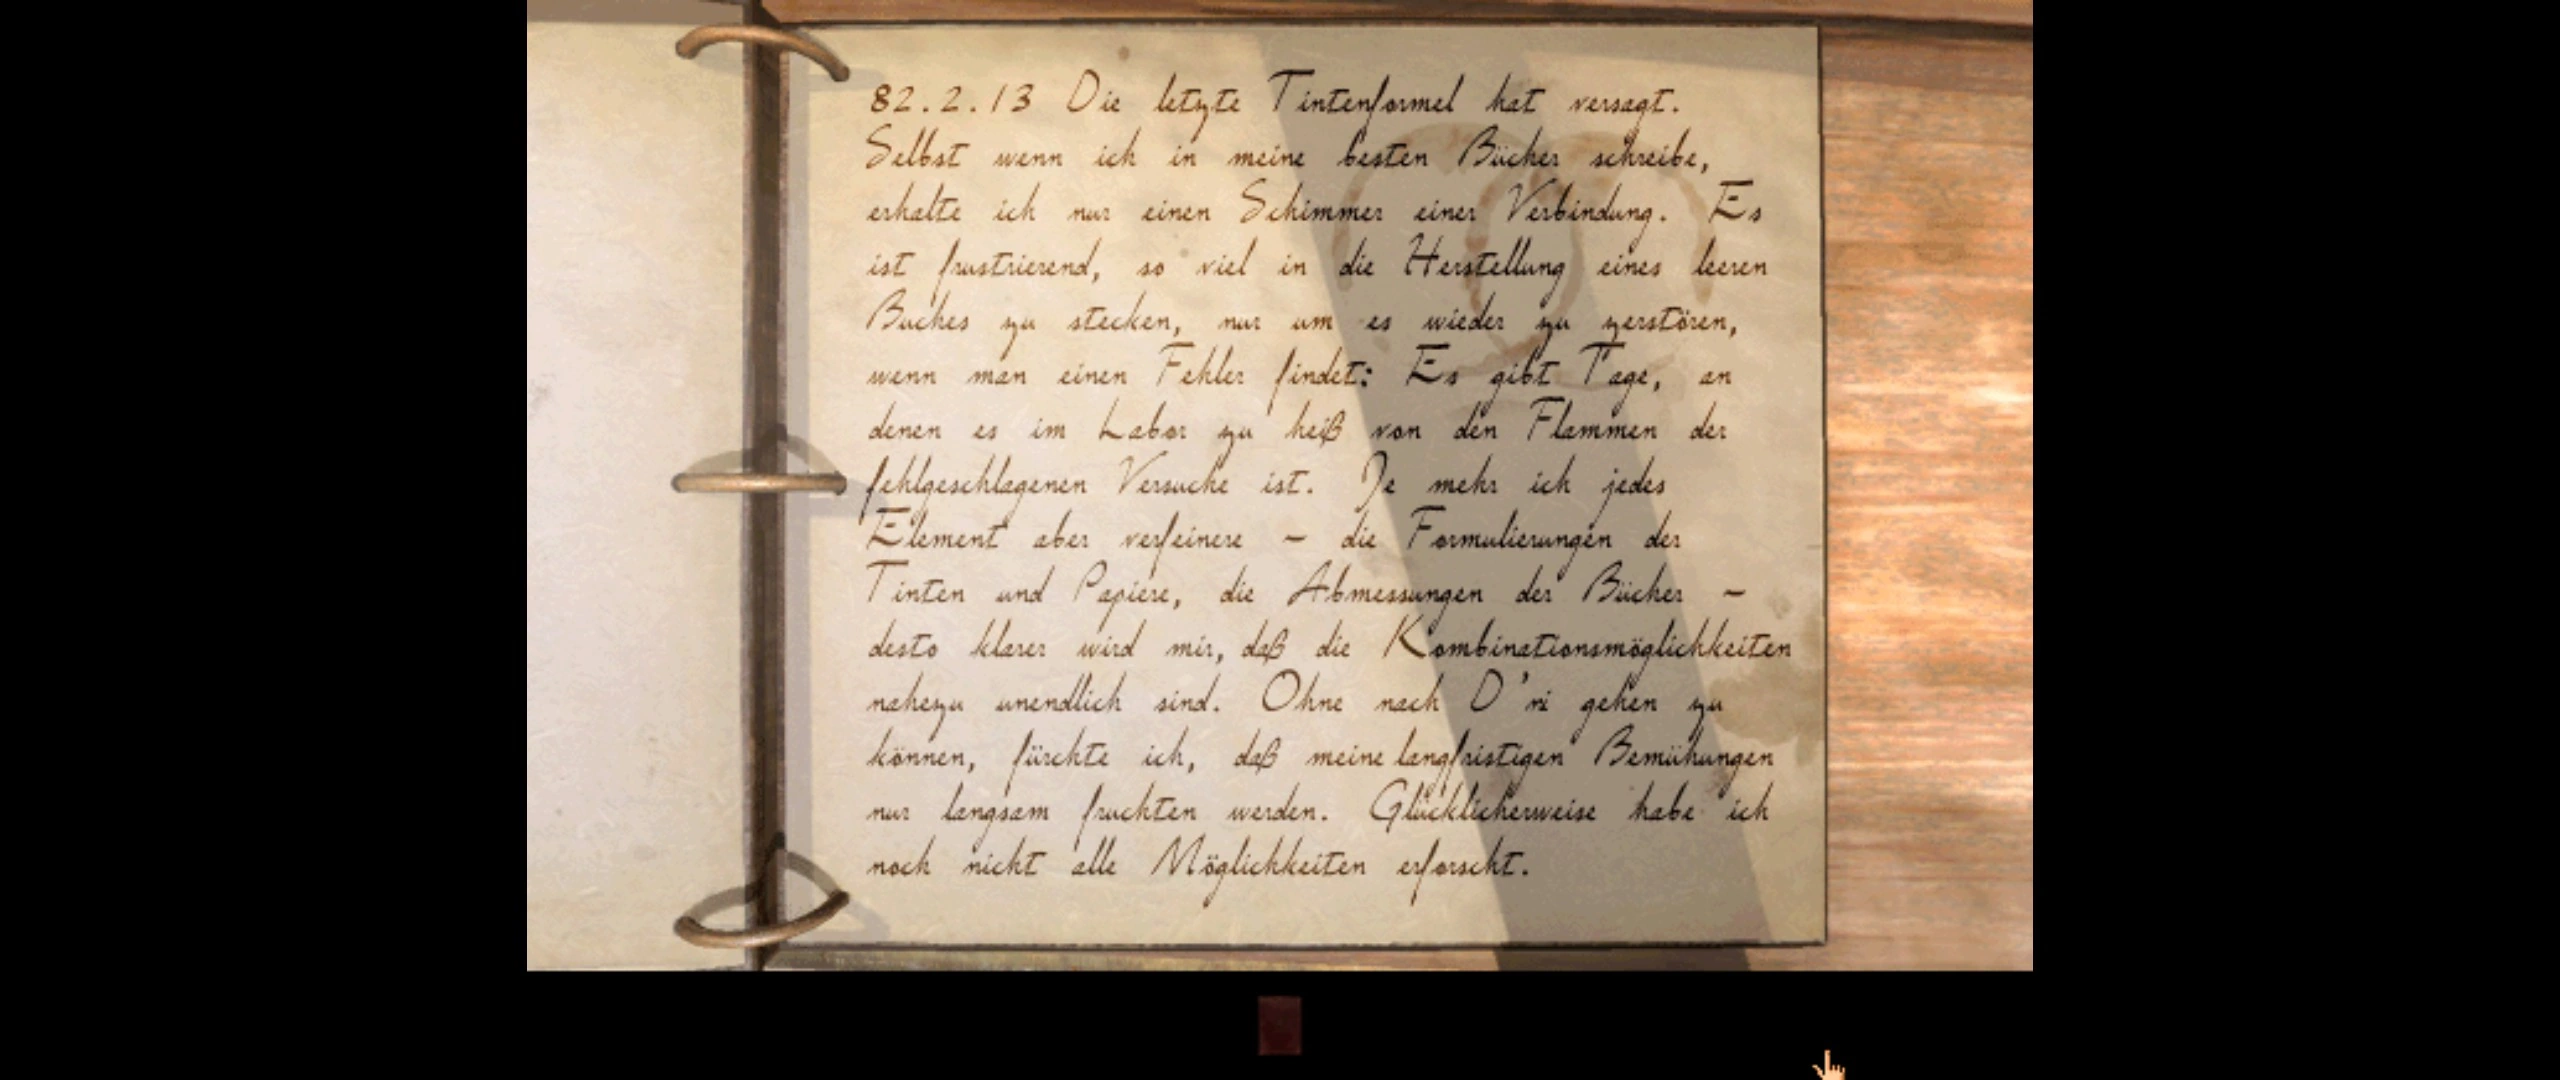 82.2.13 Die letzte Tintenformel hat versagt.
Selbst wenn ich in meine besten Bücher schreibe,
erhalte ich nur einen Schimmer einer Verbindung. Es
ist frustrierend, so viel in die Herstellung eines leeren
Buches zu stecken, nur um es wieder zu zerstören,
wenn man einen Fehler findet: Es gibt Tage, an
denen es im Labor zu heiß von den Flammen der
fehlgeschlagenen Versuche ist. Je mehr ich jedes
Element aber verfeinere – die Formulierungen der
Tinten und Papiere, die Abmessungen der Bücher –
desto klarer wird mir, daß die Kombinationsmöglichkeiten
nahezu unendlich sind. Ohne nach D'ni gehen zu
können, fürchte ich, daß meine langfristigen Bemühungen
nur langsam fruchten werden. Glücklicherweise habe ich
noch nicht alle Möglichkeiten erforscht.